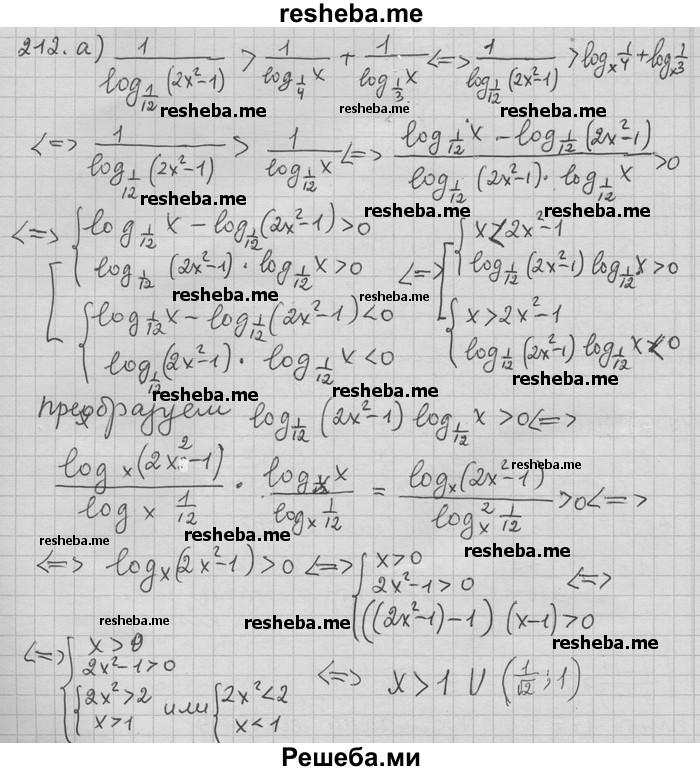 resheba.me
212. а) 1/log_{1/12}(2x²-1) > 1/log_{1/4}x + 1/log_{1/3}x <=> 1/log_{1/12}(2x²-1) > log_x 1/4 + log_x 1/3
resheba.me resheba.me resheba.me
<=> 1/log_{1/12}(2x²-1) > 1/log_{1/12}x <=> (log_{1/12}x - log_{1/12}(2x²-1))/(log_{1/12}(2x²-1)·log_{1/12}x) > 0
resheba.me resheba.me
resheba.me
<=> [ { log_{1/12}x - log_{1/12}(2x²-1) > 0
log_{1/12}(2x²-1)·log_{1/12}x > 0
{ log_{1/12}x - log_{1/12}(2x²-1) < 0
log_{1/12}(2x²-1)·log_{1/12}x < 0
<=> [ { x < 2x²-1
log_{1/12}(2x²-1) log_{1/12}x > 0
{ x > 2x²-1
log_{1/12}(2x²-1) log_{1/12}x < 0
resheba.me resheba.me
resheba.me resheba.me
преобразуем log_{1/12}(2x²-1) log_{1/12}x > 0 <=>
resheba.me
log_x(2x²-1)/log_x 1/12 · log_x x/log_x 1/12 = log_x(2x²-1)/log_x² 1/12 > 0 <=>
resheba.me
resheba.me resheba.me
<=> log_x(2x²-1) > 0 <=> { x > 0
2x²-1 > 0
((2x²-1)-1)(x-1) > 0
<=>
resheba.me resheba.me
resheba.me resheba.me
<=> { x > 0
2x²-1 > 0
{ 2x² > 2
x > 1
или { 2x² < 2
x < 1
<=> x > 1 U (1/√2; 1)
resheba.me
resheba.me
Решеба.ми